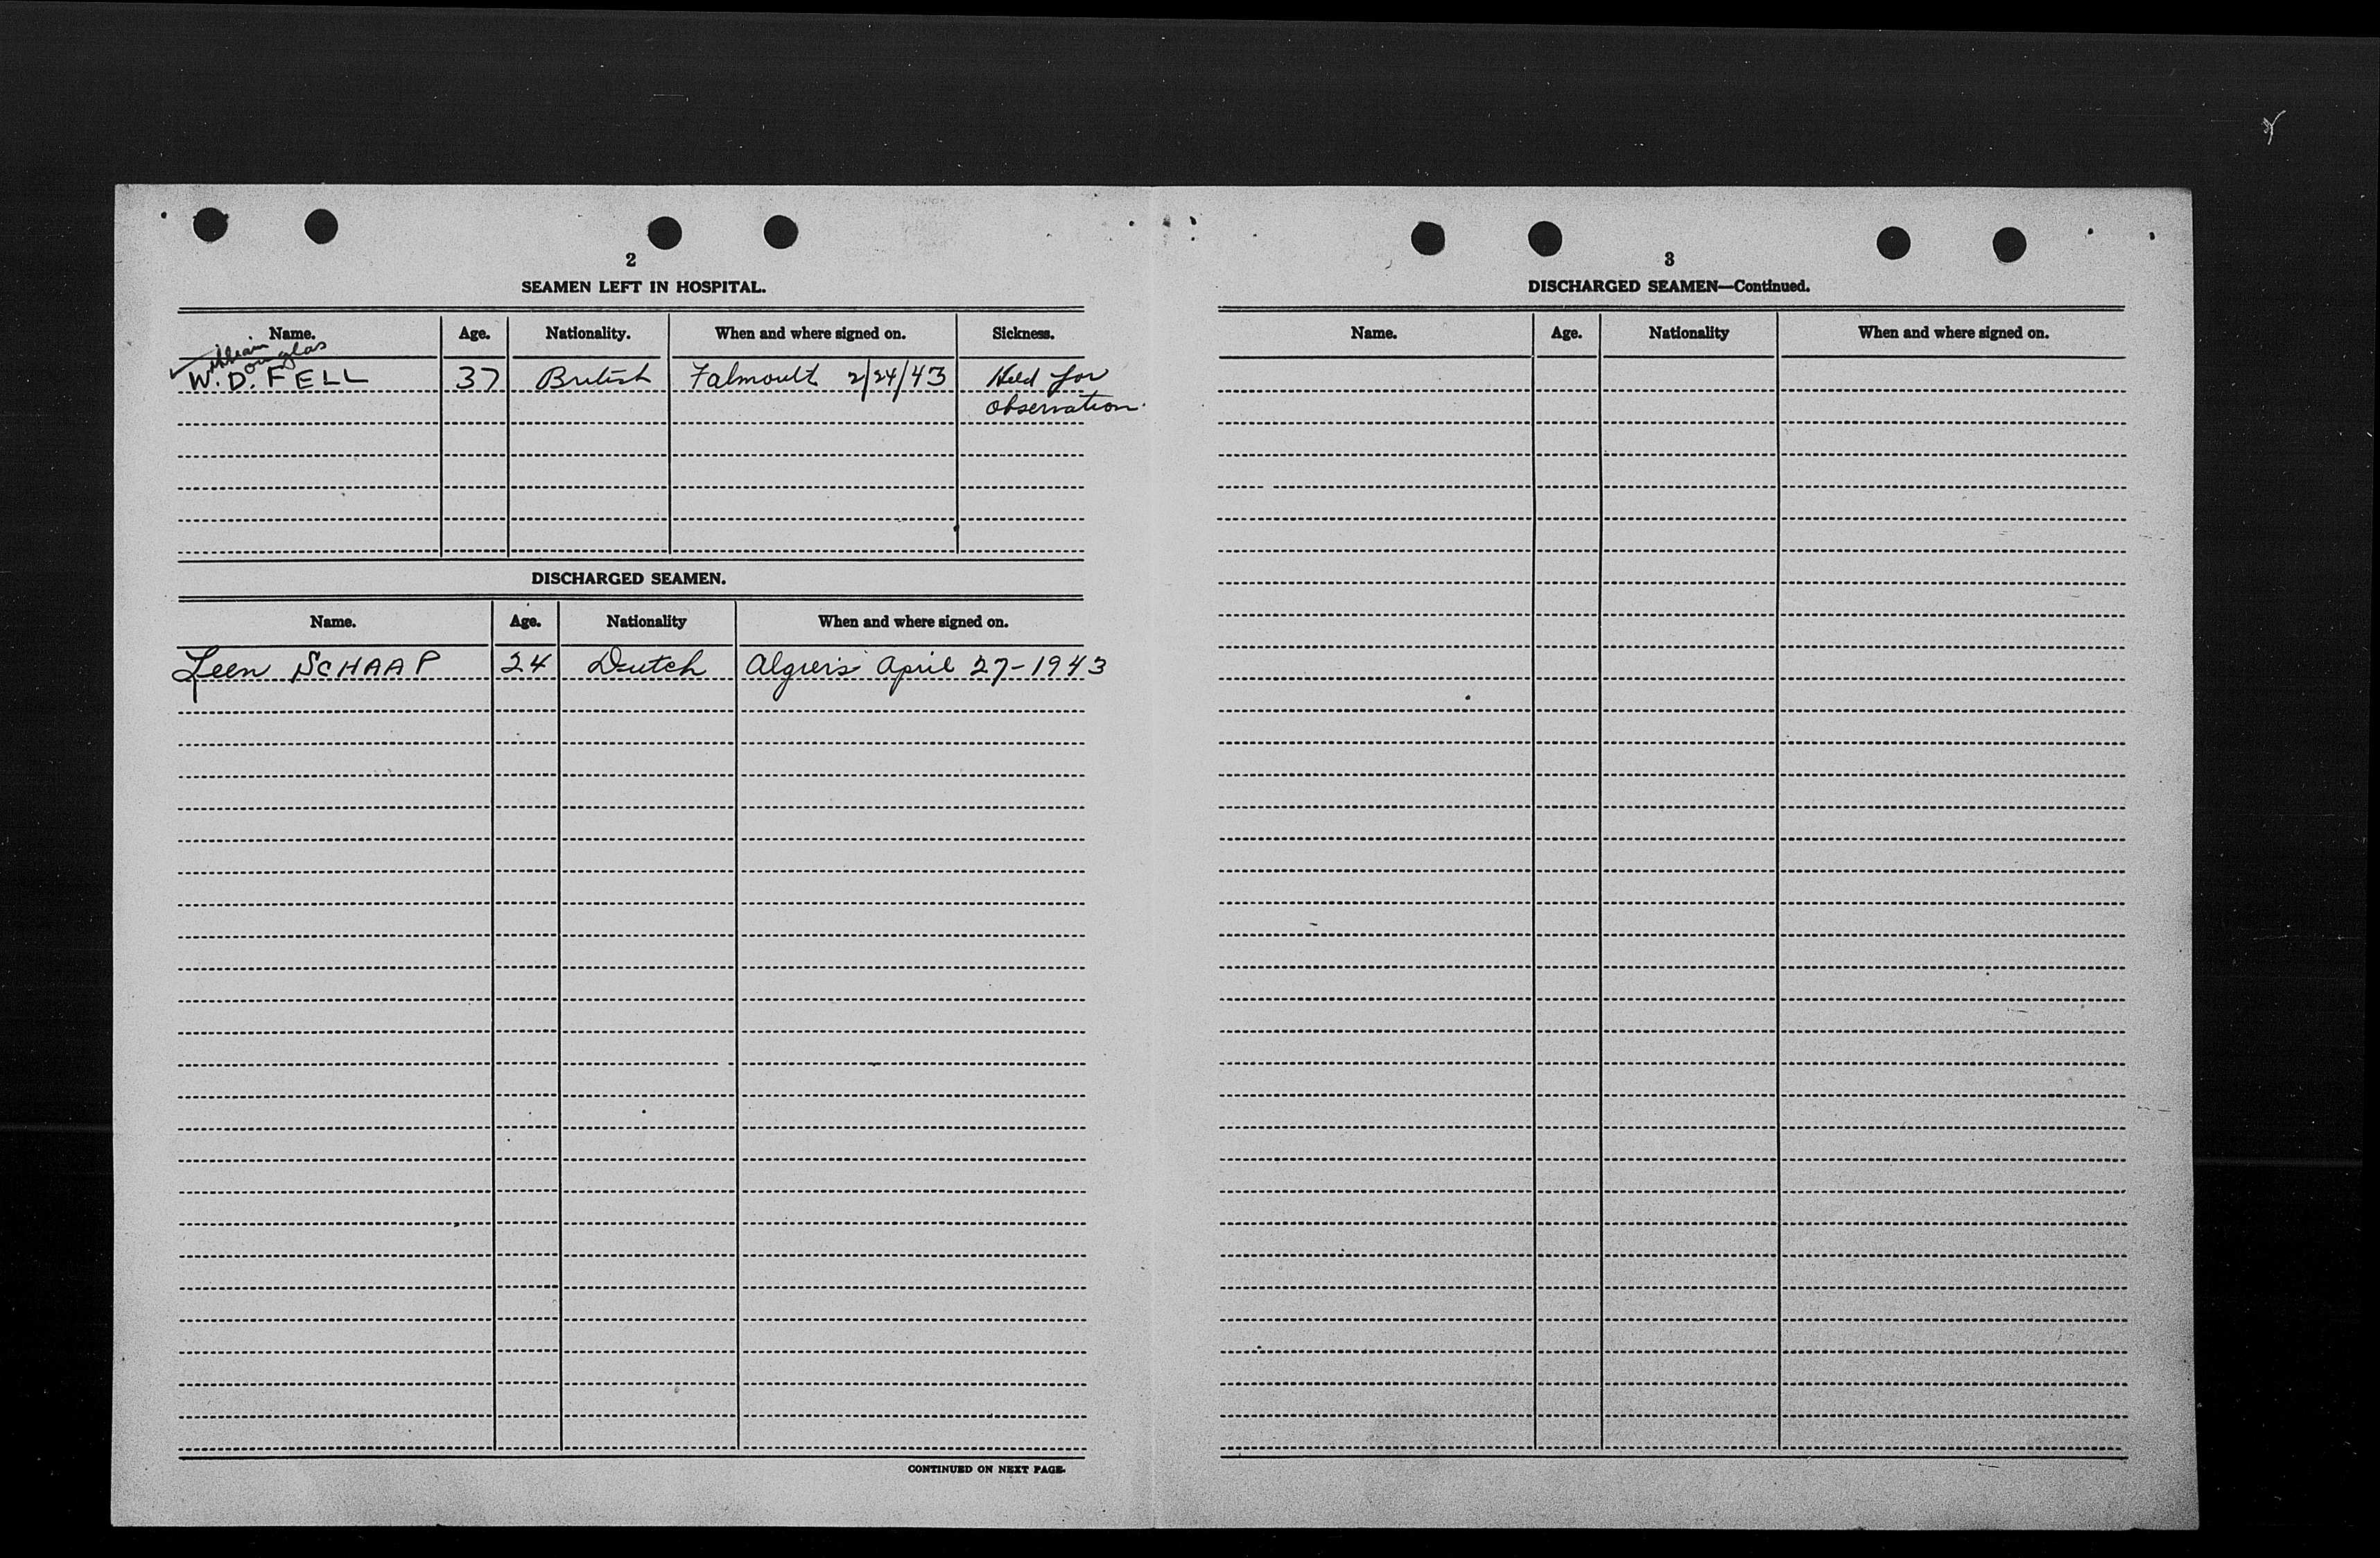 2
SEAMEN LEFT IN HOSPITAL.
Name. Age. Nationality. When and where signed on. Sickness.
William Douglas
W. D. FELL 37 British Falmouth 2/24/43 Held for
observation.
DISCHARGED SEAMEN.
Name. Age. Nationality When and where signed on.
Leen SCHAAP 24 Dutch Algiers April 27-1943
CONTINUED ON NEXT PAGE.
3
DISCHARGED SEAMEN—Continued.
Name. Age. Nationality When and where signed on.